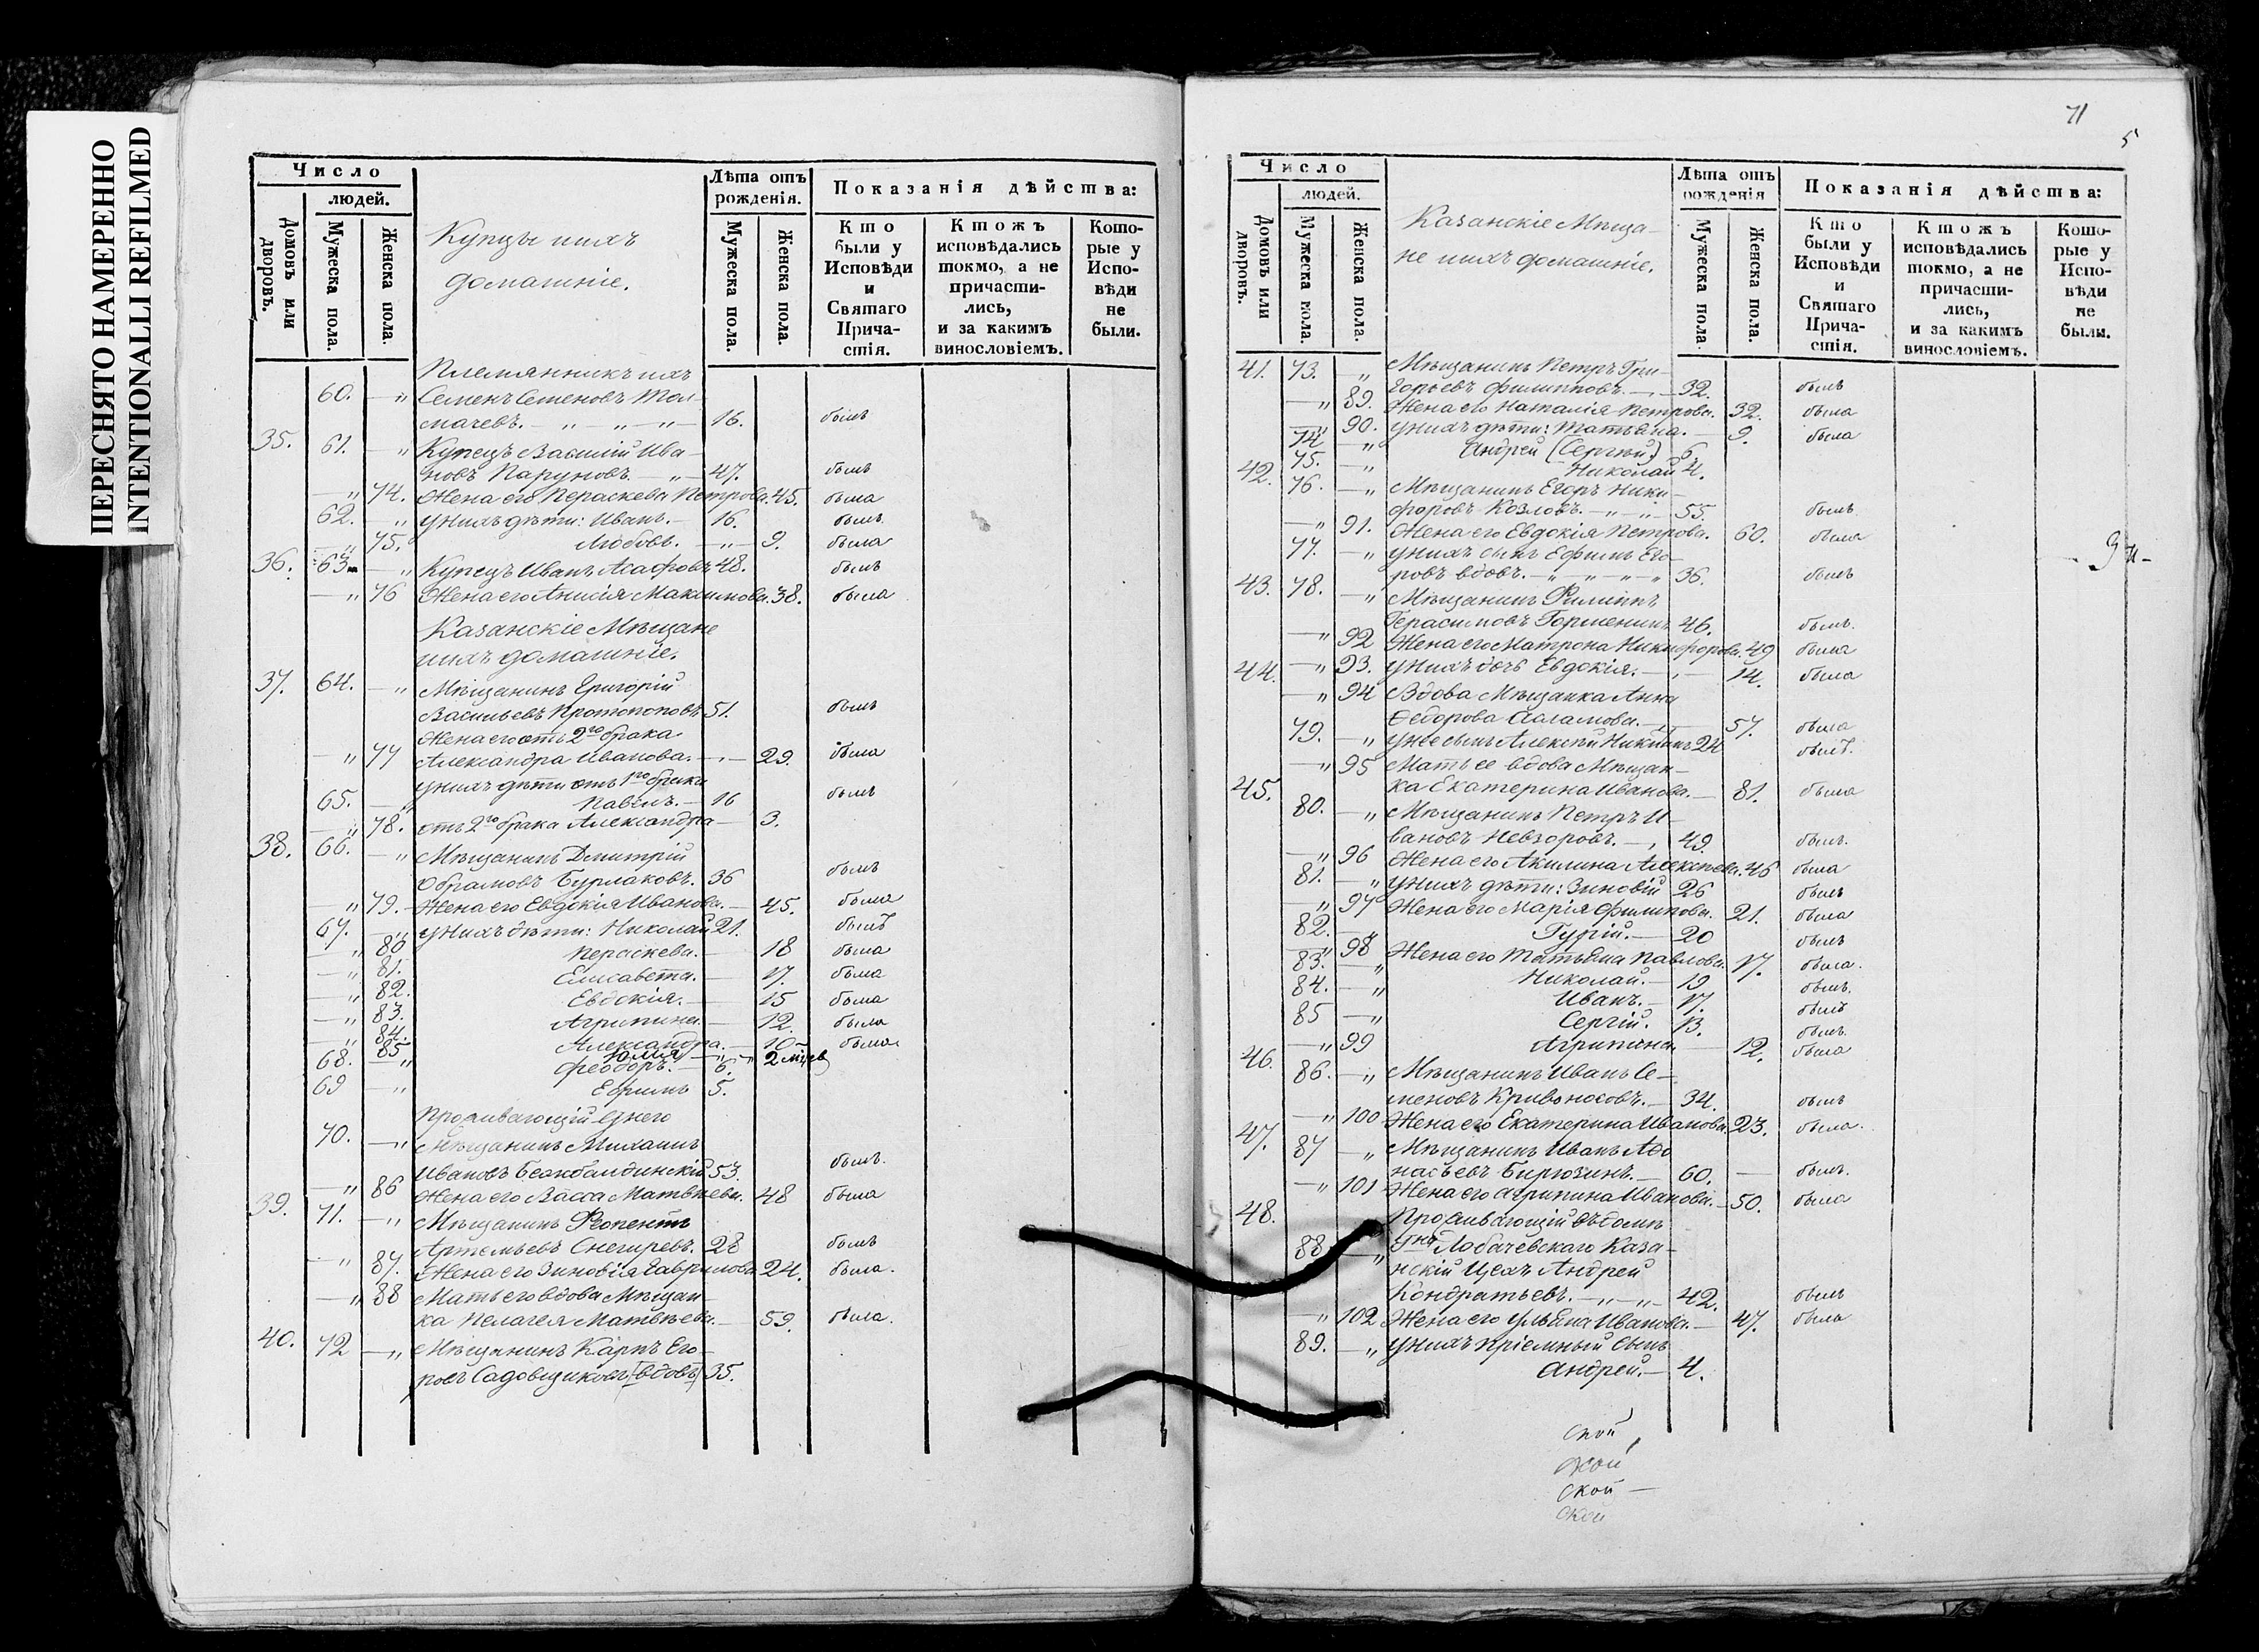 ПЕРЕСНЯТО НАМЕРЕННО
INTENTIONALLI REFILMED
Число
людей.
Домовъ или дворовъ.
Мужеска пола.
Женска пола.
Купцы и ихъ
домашніе.
Лѣта отъ рожденія.
Мужеска пола.
Женска пола.
Показанія дѣйства:
Кто были у Исповѣди и Святаго Причастія.
Ктожъ исповѣдались токмо, а не причастились, и за какимъ винословіемъ.
Которые у Исповѣди не были.
Племянникъ ихъ
60. — „ Семенъ Семеновъ Тол-
мачевъ. — „ — „ — „ — 16. былъ
35. 61. — „ Купецъ Василій Ива-
новъ Паруновъ. — „ — 47. былъ
— „ 74. Жена его Параскева Петрова. 45. была
62. — „ У нихъ дѣти: Иванъ. — 16. былъ.
— „ 75. Любовь. — „ — 9. была
36. 63. — „ Купецъ Иванъ Асафовъ 48. былъ
— „ 76 Жена его Анисія Максимова. 38. была
Казанскіе Мѣщане
и ихъ домашніе.
37. 64. — „ Мѣщанинъ Григорій
Васильевъ Протопоповъ 51. былъ
Жена его отъ 2го брака
— „ 77 Александра Иванова. — „ — 29. была
У нихъ дѣти отъ 1го брака
65. — „ Павелъ. — 16 былъ
— „ 78. отъ 2го брака Александра — 3.
38. 66. — „ Мѣщанинъ Дмитрій
Обрамовъ Бурлаковъ. 36 былъ
— „ 79. — Жена его Евдокія Иванова. — 45. была
67. — „ У нихъ дѣти: Николай 21. былъ
— „ 80 Пераскева. — 18 была
— „ 81. Елисавета. — 17. была
— „ 82. Евдокія. — 15 была
— „ 83. Агрипина. — 12. была
— „ 84. Александра. — 10 — была
85 Юлія — „ — „ 2 мѣс
68. — „ Феодоръ. — 6.
69 — „ Ефимъ 5.
Проживающій у него
70. — „ Мѣщанинъ Михаилъ
Ивановъ 53. былъ.
— „ 86 Жена его Васса Матвѣева. 48 была
39. 71. — „ Мѣщанинъ
Артемьевъ Снегиревъ. 28 былъ
— „ 87. Жена его Зиновія Гаврилова 24. была.
— „ 88 Мать его вдова Мѣщан-
ка Пелагея Матвѣева. — 59. была.
40. 72 — „ Мѣщанинъ Карпъ Его-
ровъ Садовщиковъ (вдовъ) 35.
71
5
Число
людей.
Домовъ или дворовъ.
Мужеска пола.
Женска пола.
Казанскіе Мѣща-
не и ихъ домашніе.
Лѣта отъ рожденія
Мужеска пола.
Женска пола.
Показанія дѣйства:
Кто были у Исповѣди и Святаго Причастія.
Ктожъ исповѣдались токмо, а не причастились, и за какимъ винословіемъ.
Которые у Исповѣди не были.
41. 73. „ Мѣщанинъ Петръ Гри-
горьевъ Филипповъ. — „ — 32. былъ
— „ 89. Жена его Наталія Петрова. 32. была
— „ 90. У нихъ дѣти: Татьяна. — 9. была
74 — „ Андрей (Сергѣй) 6
75. — „ Николай 4.
42. 76. — „ Мѣщанинъ Егоръ Ники-
форовъ Козловъ. — „ — „ — 55. былъ
— „ 91. Жена его Евдокія Петрова. 60. была
77. — „ У нихъ сынъ Ефимъ Его-
ровъ вдовъ. — „ — „ — „ — „ 36. былъ
43. 78. — „ Мѣщанинъ Филиппъ
Герасимовъ 46. былъ.
— „ 92 Жена его Матрона Никифорова. 49 была
— „ 93. У нихъ дочь Евдокія. — „ — 14. была
44. — „ 94 Вдова Мѣщанка Анна
Федорова — „ — 57. была
79. — „ У нее сынъ Алексѣй Никитинъ 24 былъ.
— „ 95 Мать ее вдова Мѣщан-
ка Екатерина Иванова. — 81. была
45. 80. — „ Мѣщанинъ Петръ И-
вановъ Невзоровъ. — „ 49. былъ.
— „ 96 Жена его Акилина Алексѣева. 46 была
81. — „ У нихъ дѣти: Зиновій 26 былъ
— „ 97 Жена его Марія Филипова. 21. была
82. — „ Гурій. — 20 былъ
— „ 98 Жена его Татьяна Павлова. 17. была.
83. — „ Николай. — 19 былъ.
84. — „ Иванъ. — 17. былъ
85 — „ Сергій. 13. былъ.
— „ 99 Агрипина. 12. была
46. 86. — „ Мѣщанинъ Иванъ Се-
меновъ Кривоносовъ. — 34. былъ
— „ 100 Жена его Екатерина Иванова. 23. была.
47. 87 — „ Мѣщанинъ Иванъ Афо
насьевъ Бирюзинъ. — 60. — былъ.
— „ 101 Жена его Агрипина Иванова. — 50. была
48. Проживающій въ домѣ
88 — „ Гна Лобачевскаго Каза-
нскій Цехъ Андрей
Кондратьевъ. — „ — „ — 42. былъ
— „ 102 Жена его Ульяна Иванова. — 47. была
89. — „ У нихъ пріемный сынъ
Андрей. — 4.
ской
ской
ской —
ской